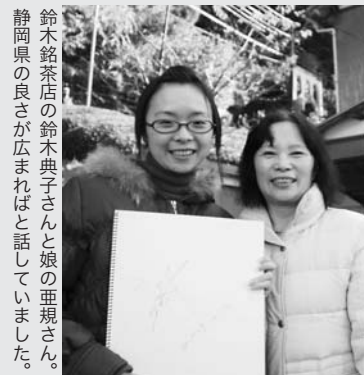 鈴木銘茶店の鈴木典子さんと娘の亜規さん。
静岡県の良さが広まればと話していました。